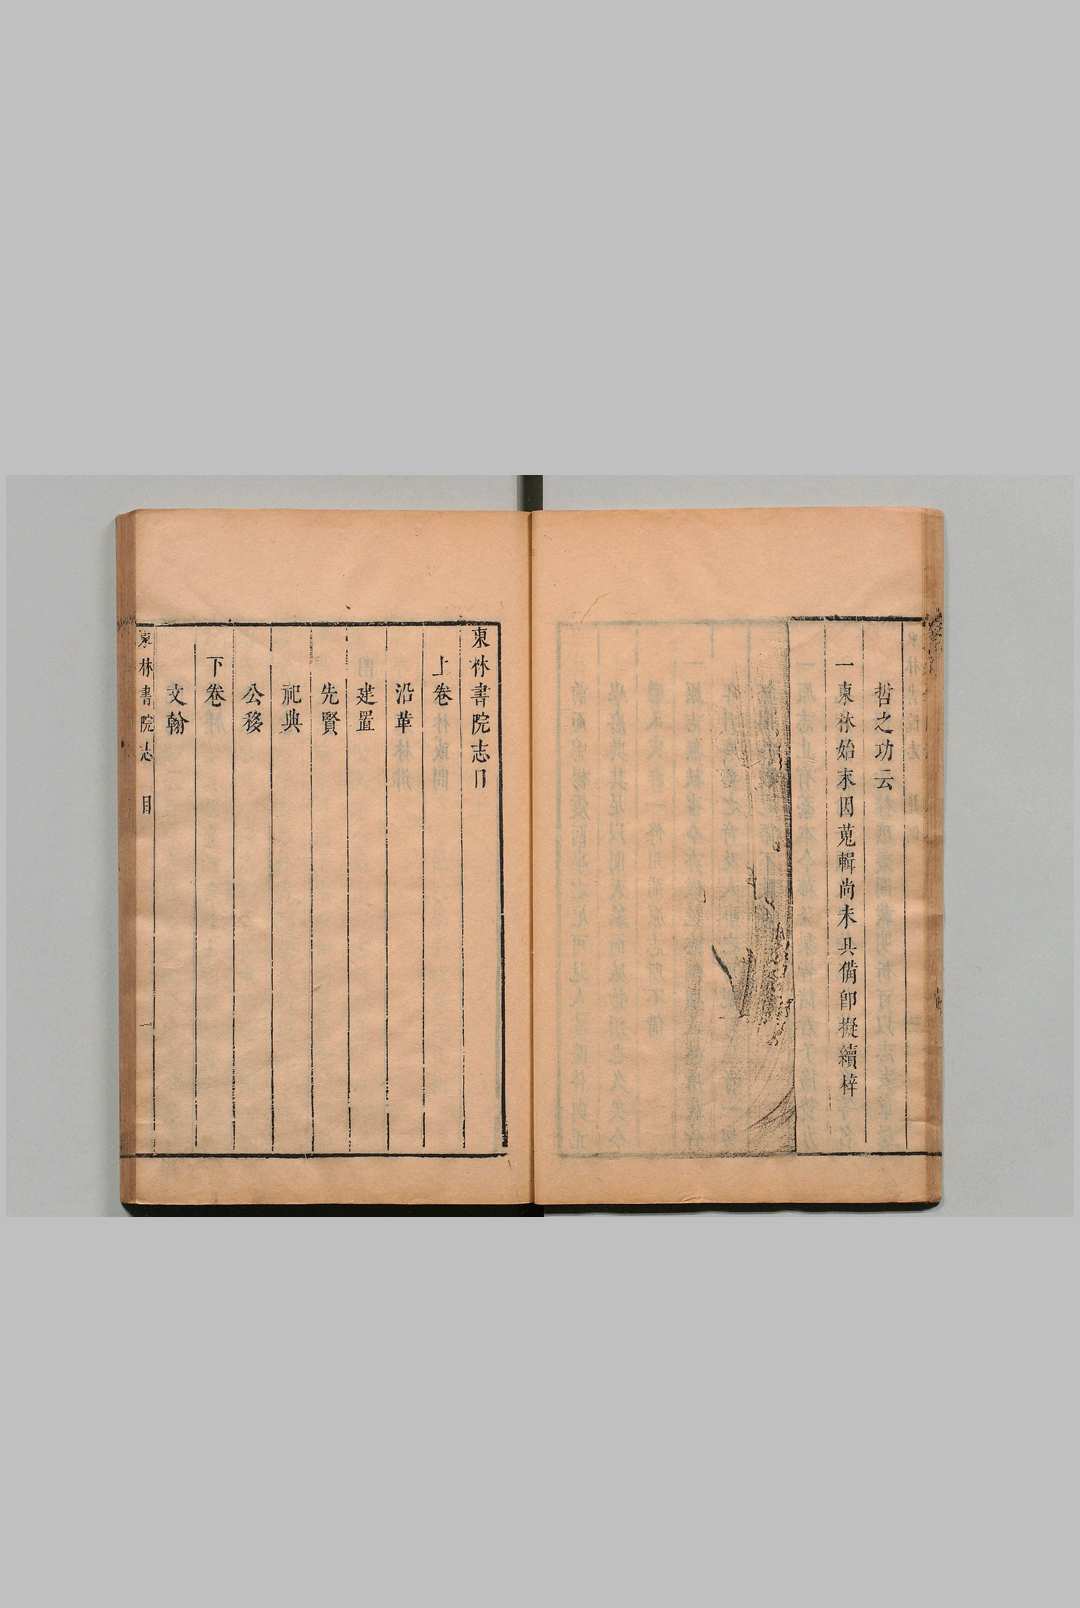 哲之功云
一東林始末因蒐輯尚未具備卽擬續梓
東林書院志目
上卷
沿革
建置
先賢
祀典
公移
下卷
文翰
東林書院志 目 一